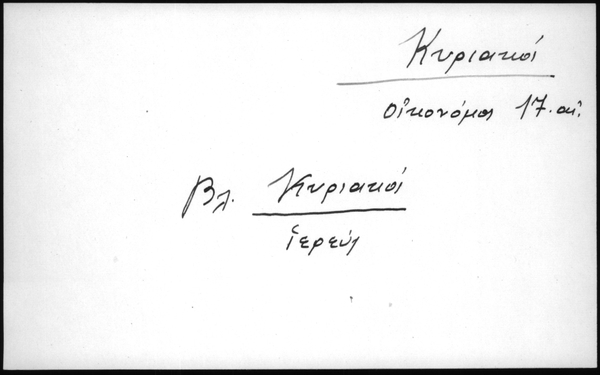 Κυριακός
οἰκονόμος 17. αἰ.
Βλ. Κυριακός
ἱερεύς